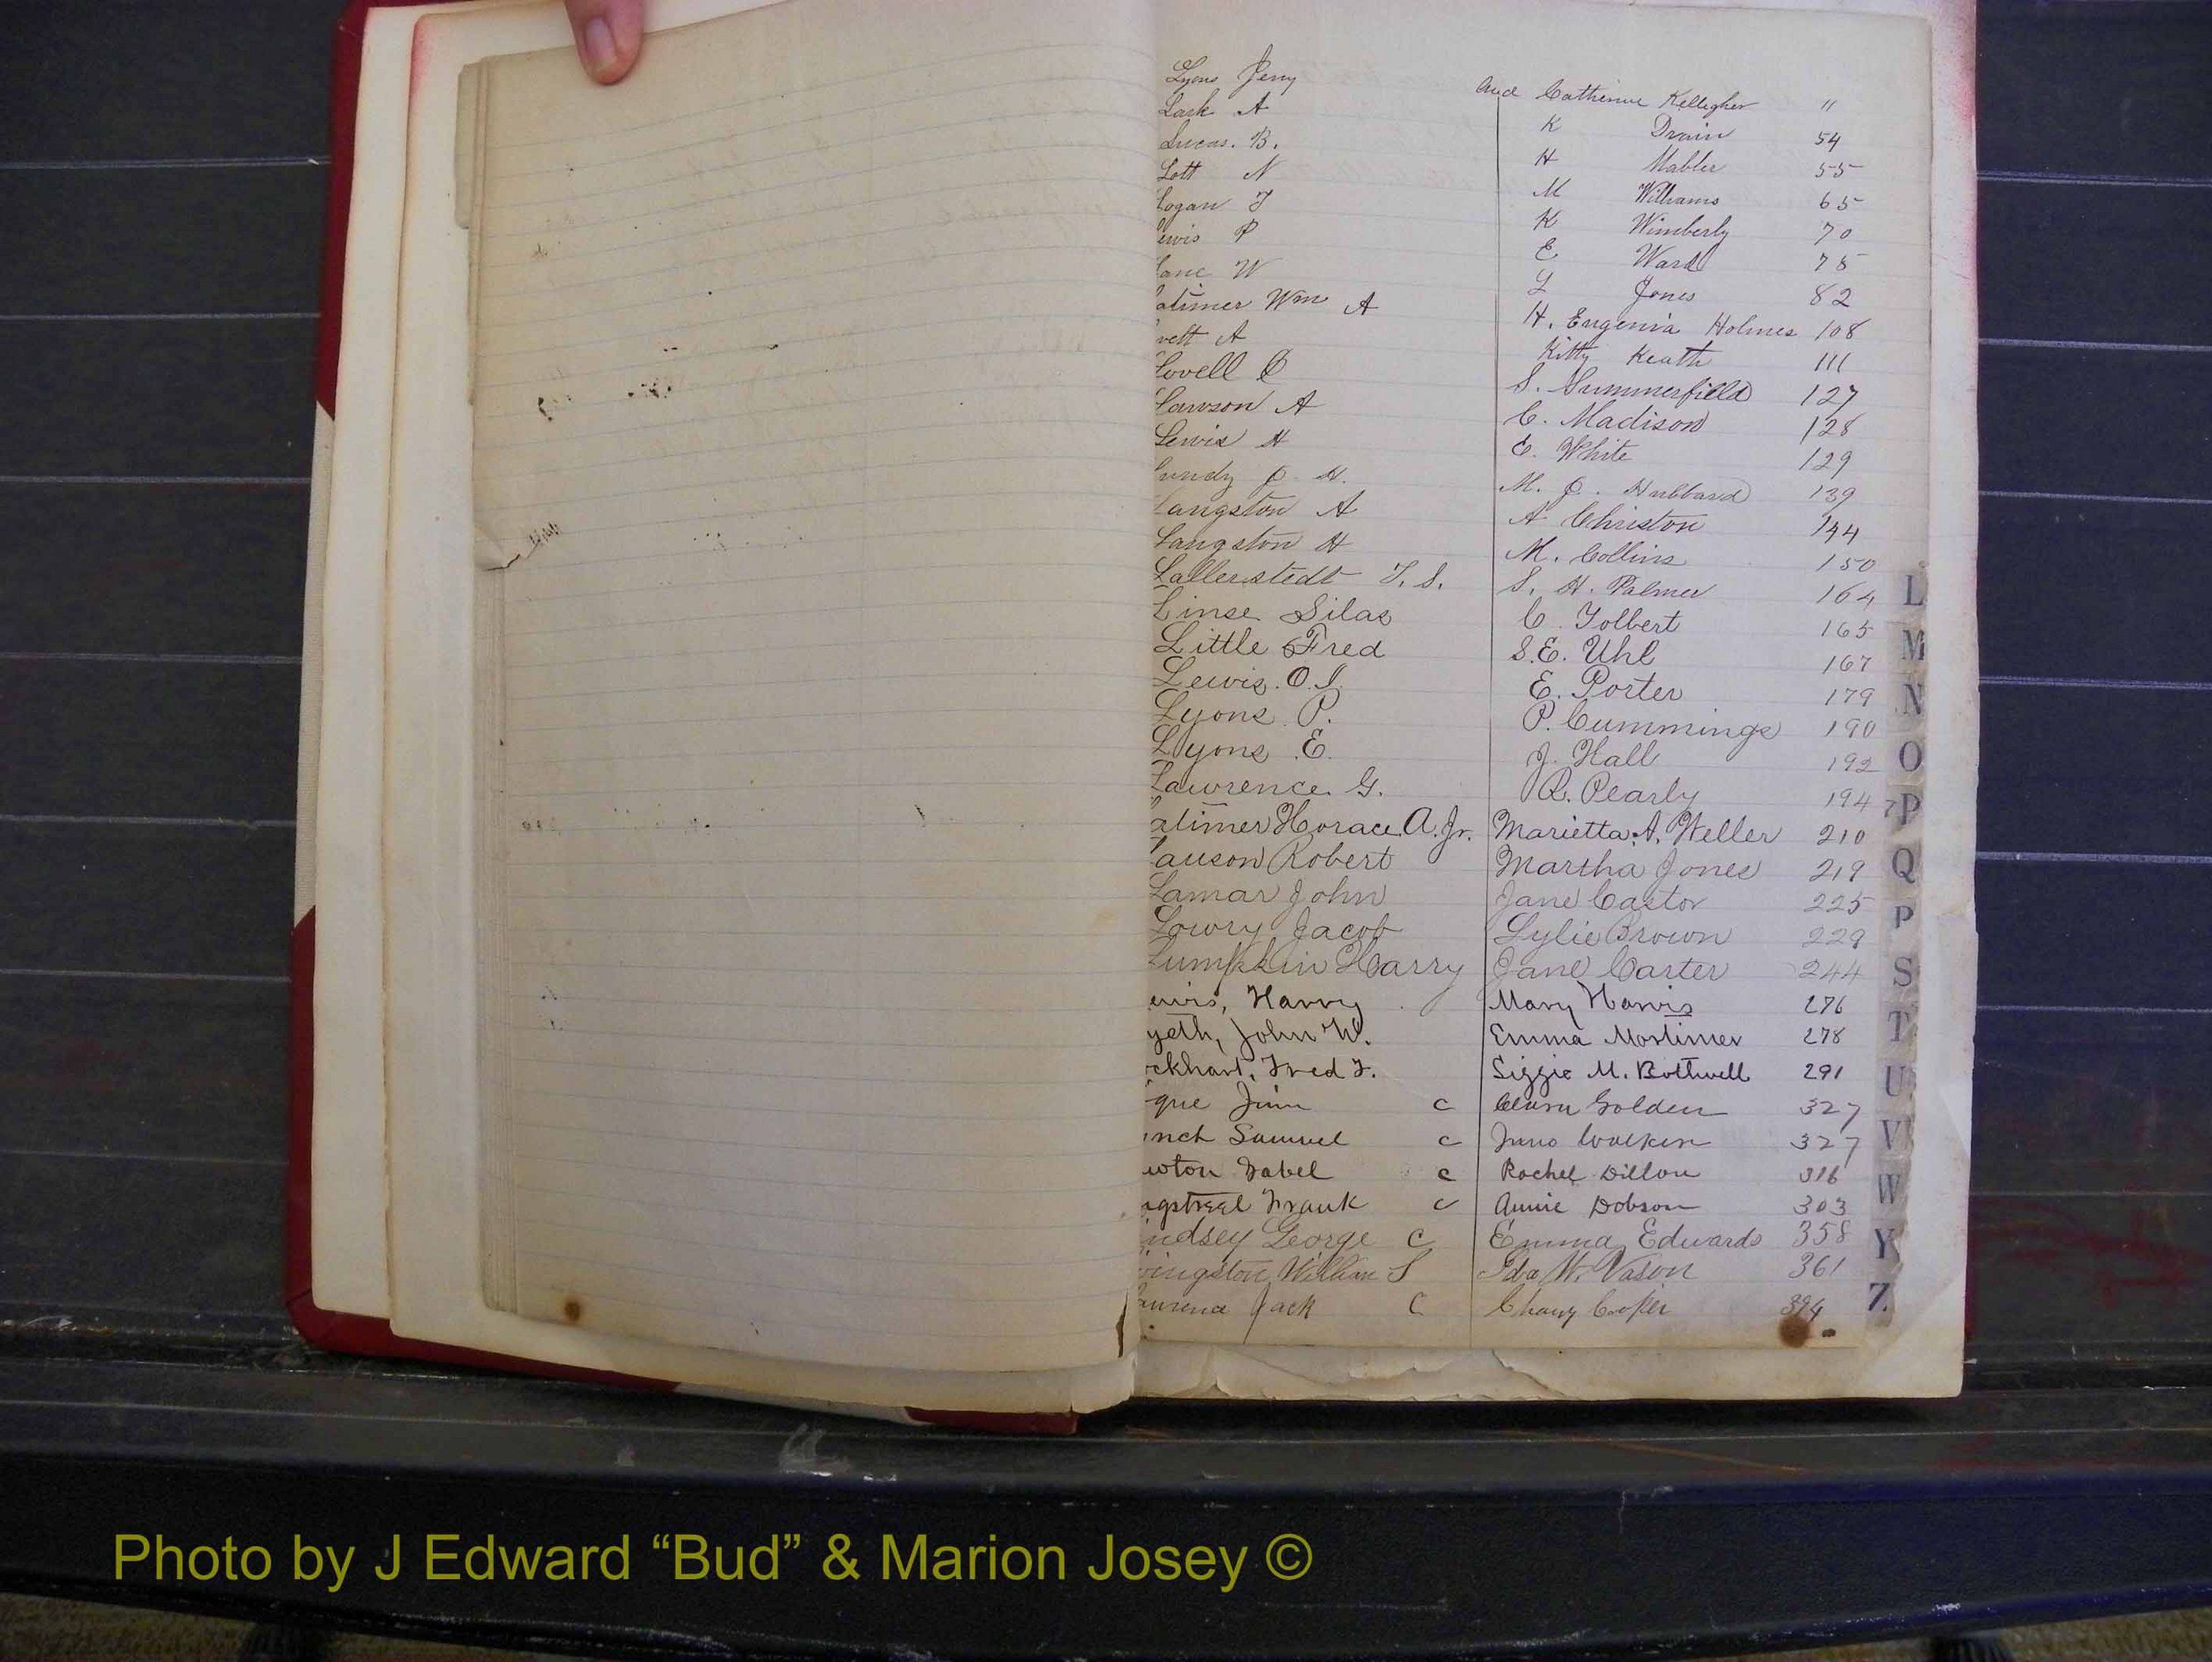 Lyons Jerry and Catherine Kellegher "
Lark A K Drain 54
Lucas. B. H Mabler 55
Lott N M Williams 65
Logan J K Wimberly 70
ewis P E Ward 75
Lane W L Jones 82
atimer Wm A H. Eugenia Holmes 108
vett A Kitty Keath 111
Lovell C S. Summerfield 127
Lawson A C. Madison 128
Lewis H C. White 129
undy H. M. Hubbard 139
Langston A A Christon 144
Langston H M. Collins 150
Lallerstedt T. S. S. H. Palmer 164
Linse Silas C. Tolbert 165
Little Fred S.E. Uhl 167
Lewis. O.J. E. Porter 179
Lyons P. P. Cummings 190
Lyons E. J. Hall 192
Lawrence G. R. Pearly 194
atimer Horace A. Jr. Marietta A. Weller 210
auson Robert Martha Jones 219
Lamar John Jane Castor 225
Lowry Jacob Lylie Brown 229
Lumpkin Harry Jane Carter 244
ewis, Harry Mary Harris 276
yeth, John W. Emma Mortimer 278
ckhart, Fred F. Lizzie M. Bothwell 291
gue Jim c Clara Golden 327
nch Samuel c Juno Walker 327
wton Isabel c Rachel Dillon 316
ngstreet Frank c Annie Dobson 303
indsey George C Emma Edwards 358
vingston William S Ida W. Vason 361
aurence Jack C Chany Cooper 394
L
M
N
O
P
Q
P
S
T
U
V
W
Y
Z
Photo by J Edward “Bud” & Marion Josey ©